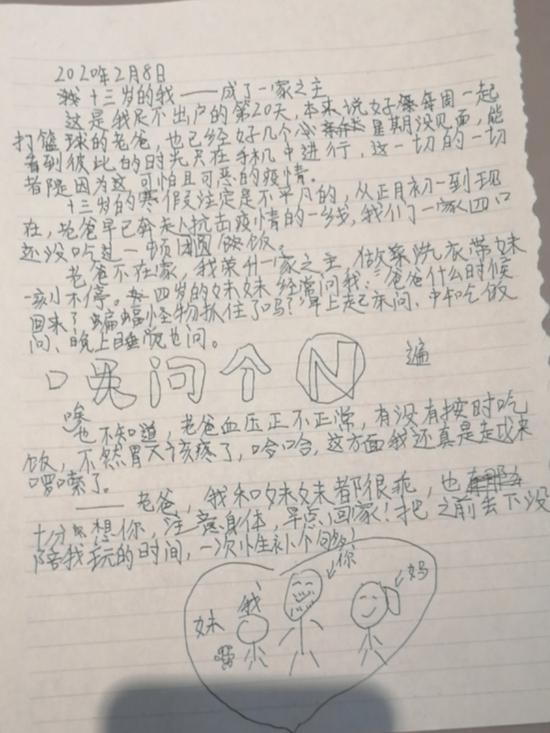 2020年2月8日
十三岁的我——成了一家之主
这是我足不出户的第20天,本来说好每周一起
打篮球的老爸,也已经好几个星期没见面,能
看到彼此的时光只在手机中进行,这一切的一切
者陡因为这可怕且可恶的疫情。
十三岁的寒假注定是不平凡的,从正月初一到现
在,老爸早已奔赴抗击疫情的一线,我们一家四口
还没吃过一顿团圆饭。
老爸不在家,我荣升一家之主,做菜洗衣带妹
一刻不停。四岁的妹妹经常问我:爸爸什么时候
回来了蝙蝠怪物抓住了吗?早上起床问、中午吃饭
问、晚上睡觉也问。
口问个N遍
唉
也不知道,老爸血压正不正常,有没有按时吃
饭,不然胃又该疼了,哈哈,这方面我还真是走起来
啰嗦了。
——老爸,我和妹妹都很乖,也
十分想你,注意身体,早点回家!把之前去下没
陪我玩的时间,一次性补个够!
你
我
妈
妹